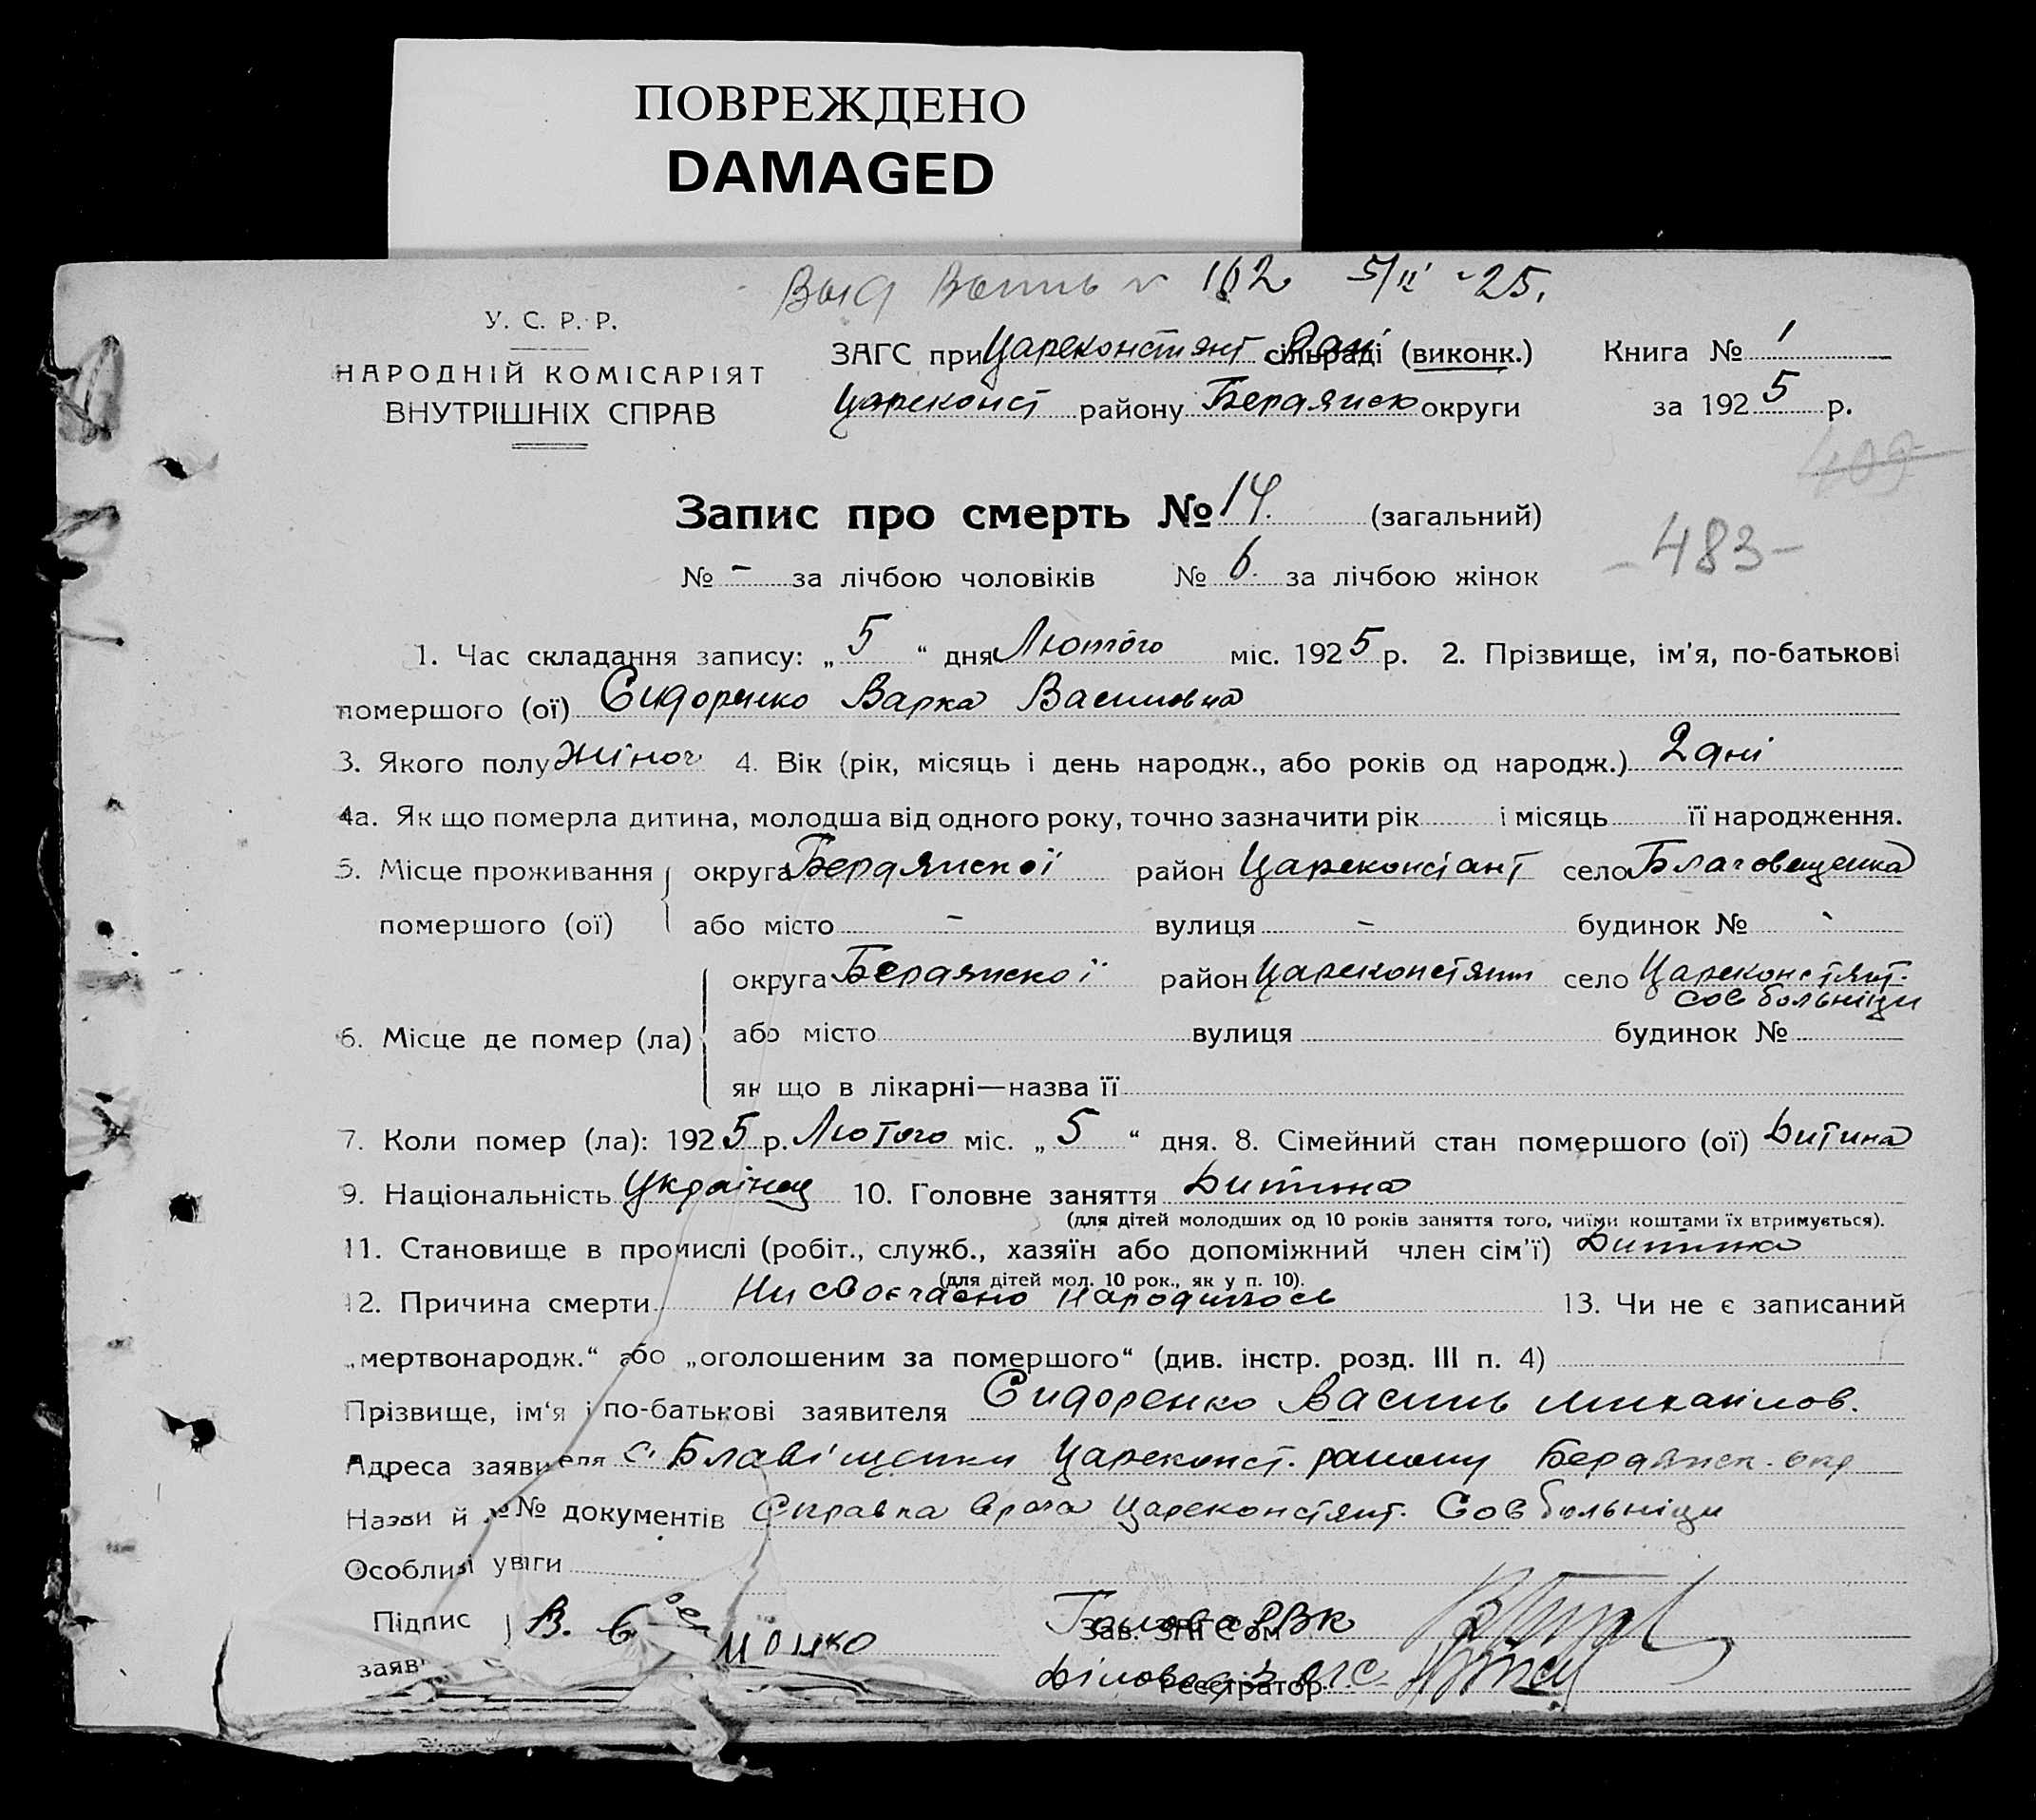 ПОВРЕЖДЕНО
DAMAGED
162 5/II -25.
У. С. Р. Р.
НАРОДНІЙ КОМІСАРІЯТ
ВНУТРІШНІХ СПРАВ
ЗАГС при Цареконстянт сільраді (виконк.) Книга № 1
Цареконст району Бердянсько округи за 1925 р.
409
Запис про смерть № 14. (загальний)
-483-
№ - за лічбою чоловіків № 6. за лічбою жінок
1. Час складання запису: „5“ дня Лютого міс. 1925 р. 2. Прізвище, ім'я, по-батькові
помершого (ої) Сидоренко Варка Василовна
3. Якого полу Жіноч 4. Вік (рік, місяць і день народж., або років од народж.) 2 дні
4а. Як що померла дитина, молодша від одного року, точно зазначити рік і місяць її народження.
5. Місце проживання округа Бердянської район Цареконстант село Благовещенка
помершого (ої) або місто - вулиця - будинок № -
округа Бердянської район Цареконстянт село Цареконстянт.
сов больніци
6. Місце де помер (ла) або місто вулиця будинок №
як що в лікарні—назва її
7. Коли помер (ла): 1925 р. Лютого міс. „5“ дня. 8. Сімейний стан помершого (ої) Дитина
9. Національність Українец 10. Головне заняття Дитина
(для дітей молодших од 10 років заняття того, чиїми коштами їх втримується).
11. Становище в промислі (робіт., служб., хазяїн або допоміжний член сім'ї) Дитина
(для дітей мол. 10 рок., як у п. 10).
12. Причина смерти Ни своєчасно народилось 13. Чи не є записаний
„мертвонародж.“ або „оголошеним за помершого“ (див. інстр. розд. III п. 4)
Прізвище, ім'я і по-батькові заявителя Сидоренко Василь Михайлов.
Адреса заявителя с. Блавіщенки Цареконст. району Бердянск. окр
Назви й №№ документів Справка врача Цареконстянт. Сов больніци
Особливі увіги
Підпис В. Голова РВК
Зав. ЗАГС'ом
заяв Діловод ЗАГС
Реєстратор